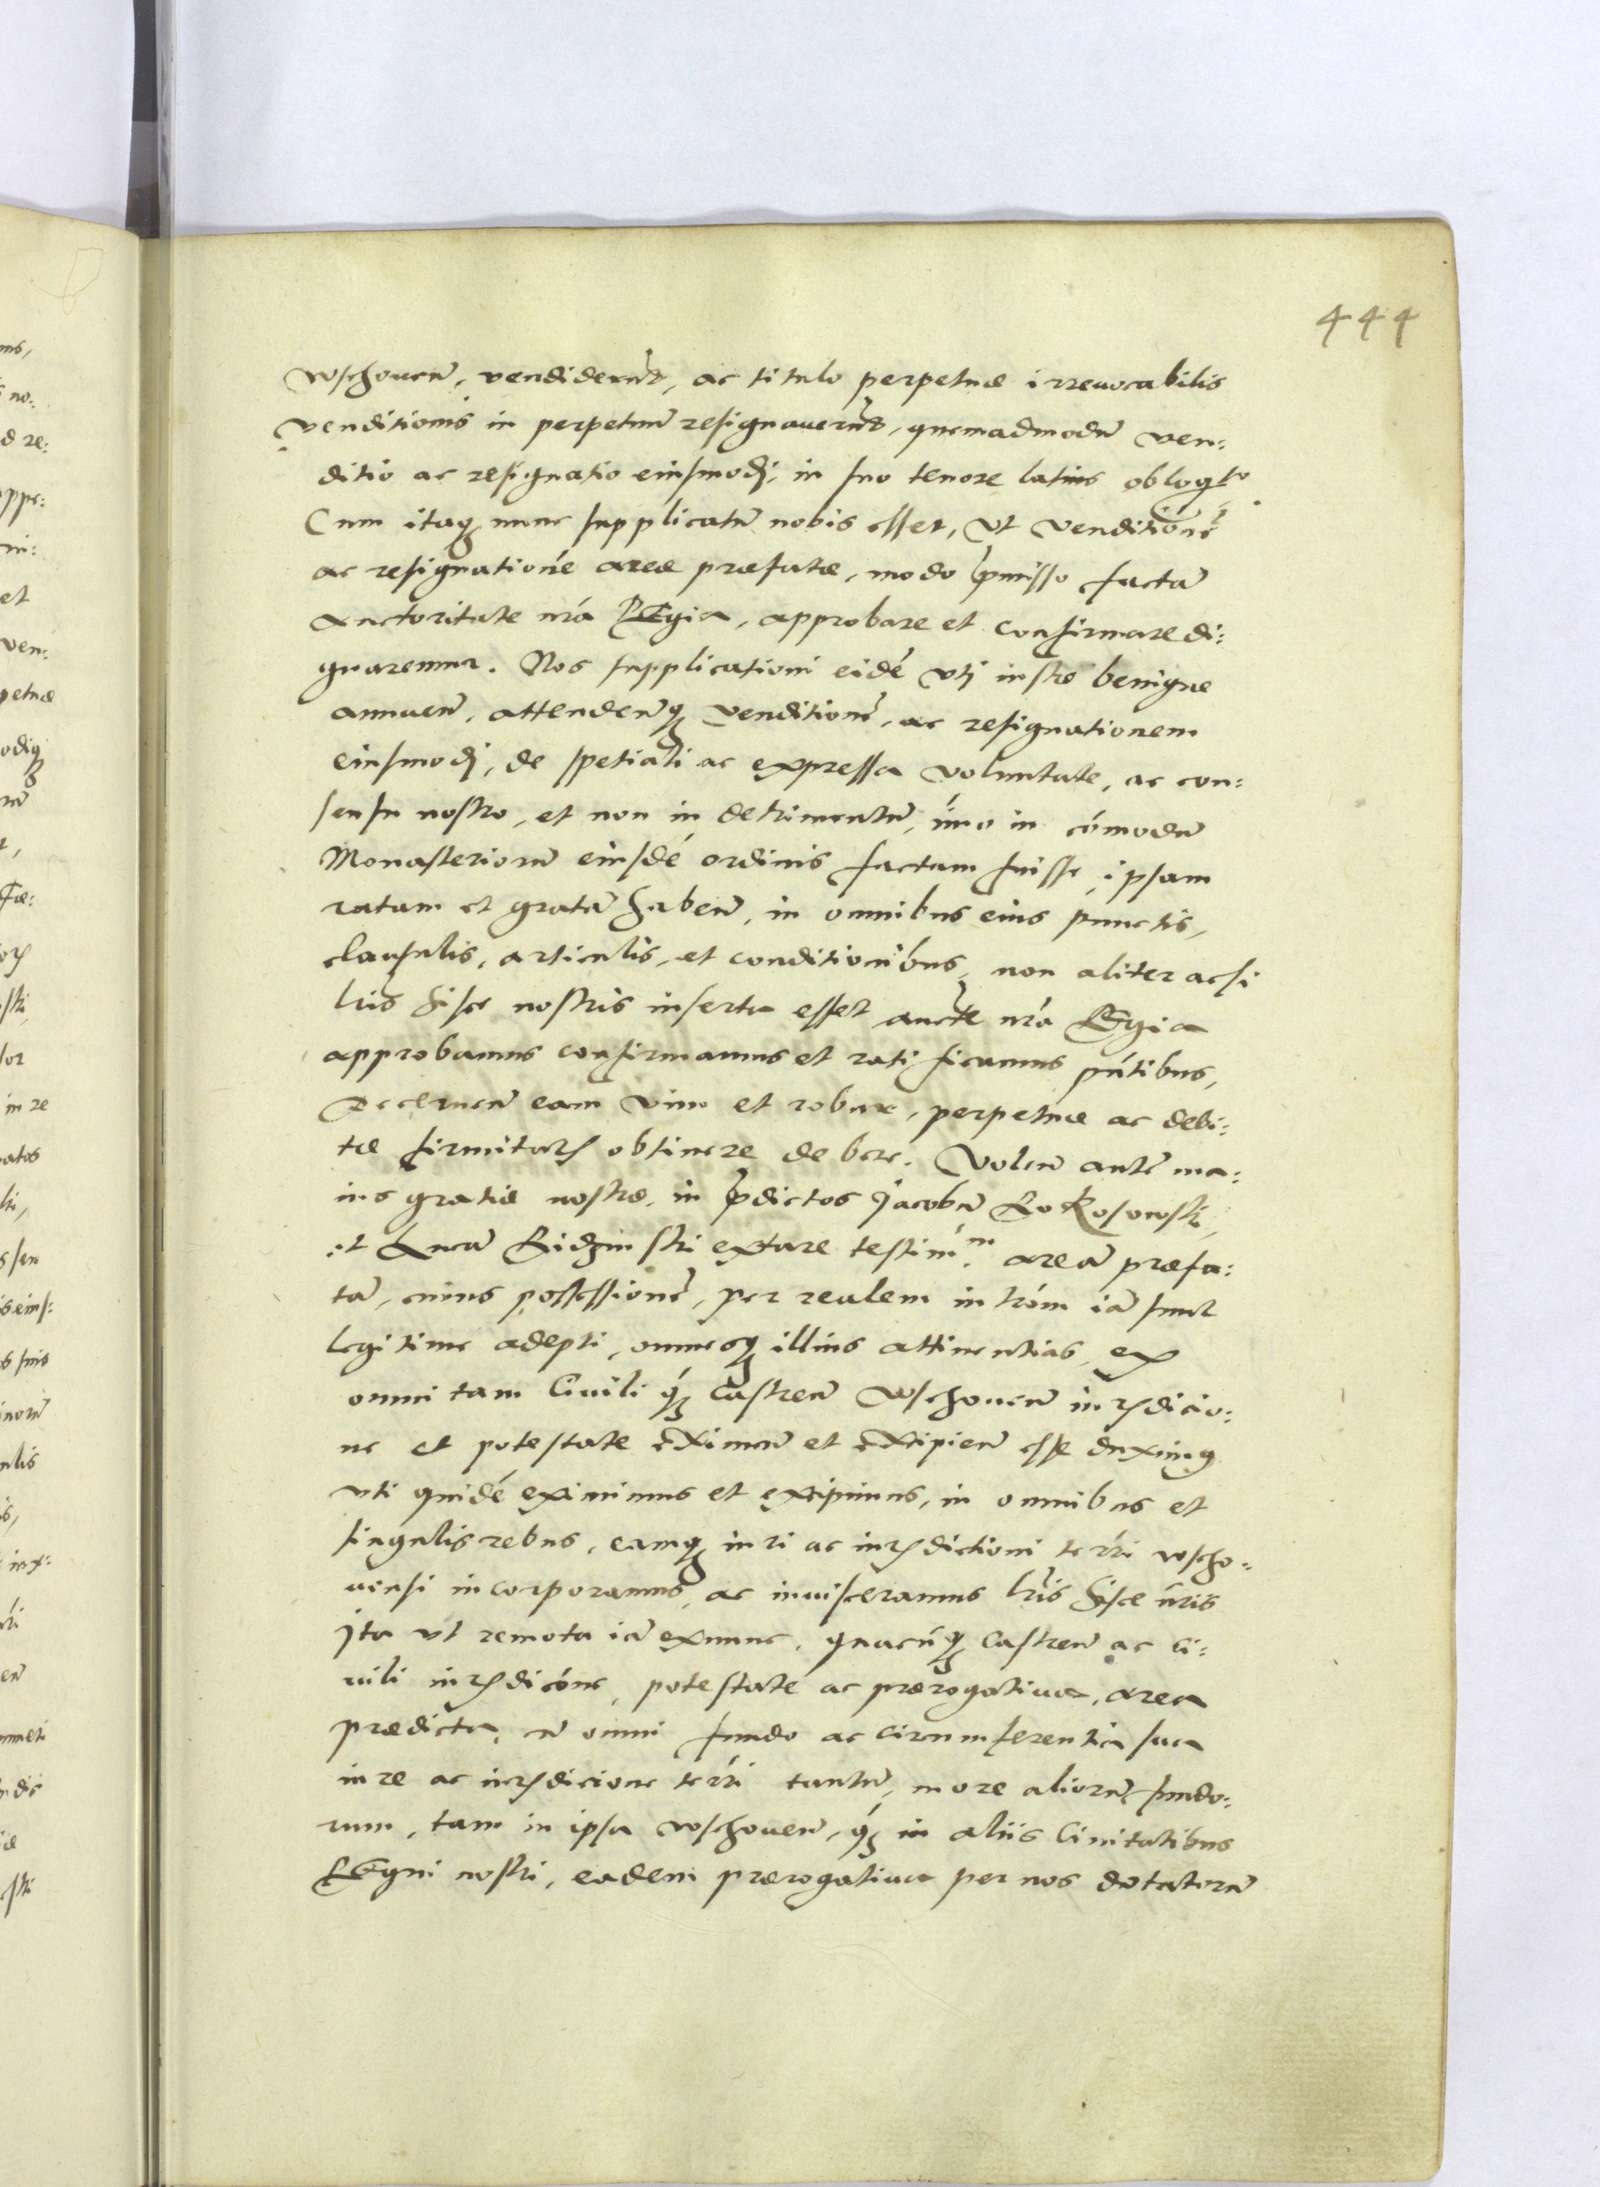 444
wschouen̄, vendiderūt, ac titulo perpetuæ irreuocabilis
venditionis in perpetuū resignauerūt, quemadmodū ven:
ditio ac resignatio eiusmodi, in suo tenore latius obloq̄to.
Cum itaq; nunc supplicatū nobis esset, vt venditionē
ac resignationē areæ præfatæ, modo p̄misso factā
Auctoritate nr̄a Regia, approbare et confirmare di:
gnaremur. Nos supplicationi eidē vti iustæ benigne
annuen̄, attenden̄q; venditionē, ac resignationem
eiusmodi, de spetiali ac expressa voluntate, ac con:
sensu nostro, et non in detrimentū, im̄o in com̄odū
Monasteriorū eiusdē ordinis factam fuisse, ipsam
ratam et gratā haben̄, in omnibus eius punctis,
clausulis, articulis, et conditionibus, non aliter acsi
lr̄is hisce nostris inserta esset aucte nr̄a Regia
approbamus confirmamus et ratificamus pn̄tibus,
Decernen̄ eam vim et robur, perpetuæ ac debi:
tæ firmitatis obtinere debere. Volen̄ autē ma:
ius gratiæ nostræ, in p̄dictos Jacobū Rokosowski,
et Lucā extare testim̄m. areā præfa:
tā, cuius possessionē, per realem introm̄ iā sunt
legitime adepti, omnesq; illius attinentias, ex
omni tam Ciuili q̄ Castren̄ wschouen̄ iurisdicio:
ne et potestate eximen̄ et excipien̄ esse duximus
vti quidē eximimus et excipimus, in omnibus et
singulis rebus, eamq; iuri ac iurisdictioni terr̄i wscho:
uiensi incorporamus, ac inuisceramus lr̄is hisce nr̄is
Ita vt remota iā exnunc, quacūq; Castren̄ ac Ci:
uili iurisdicōne, potestate ac prærogatiua, area
prædicta, cū omni fundo ac circumferentia sua
iure ac iurisdicione terr̄i tantū, more aliorū fundo:
rum, tam in ipsa wschouen̄, q̄ in aliis Ciuitatibus
Regni nostri, eadem prærogatiua per nos dotatorū